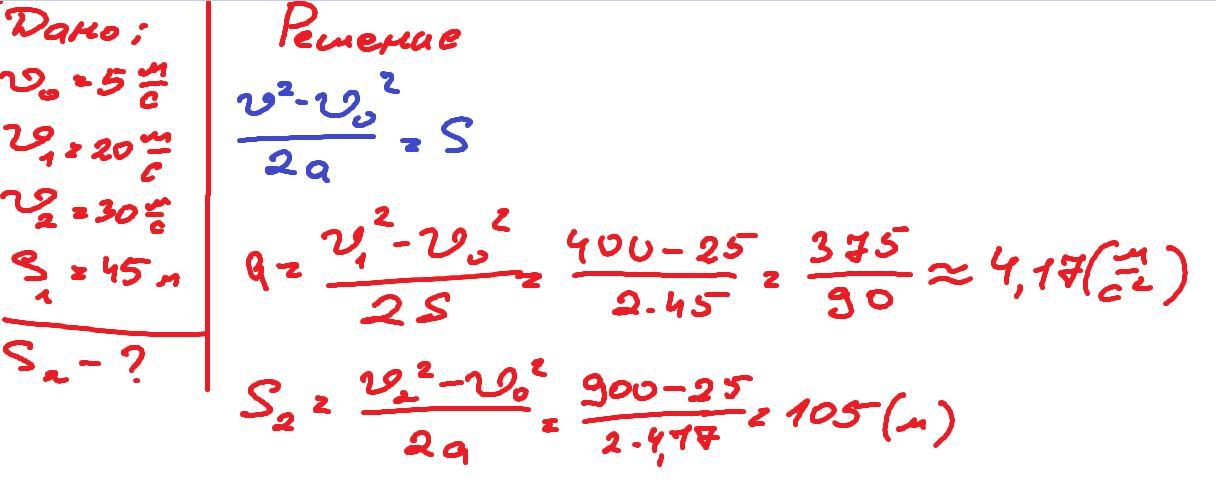 Дано:
v₀ = 5 м/с
v₁ = 20 м/с
v₂ = 30 м/с
S₁ = 45 м
S₂ - ?
Решение
(v² - v₀²)/(2a) = S
a = (v₁² - v₀²)/(2S) = (400 - 25)/(2·45) = 375/90 ≈ 4,17 (м/с²)
S₂ = (v₂² - v₀²)/(2a) = (900 - 25)/(2·4,17) = 105 (м)